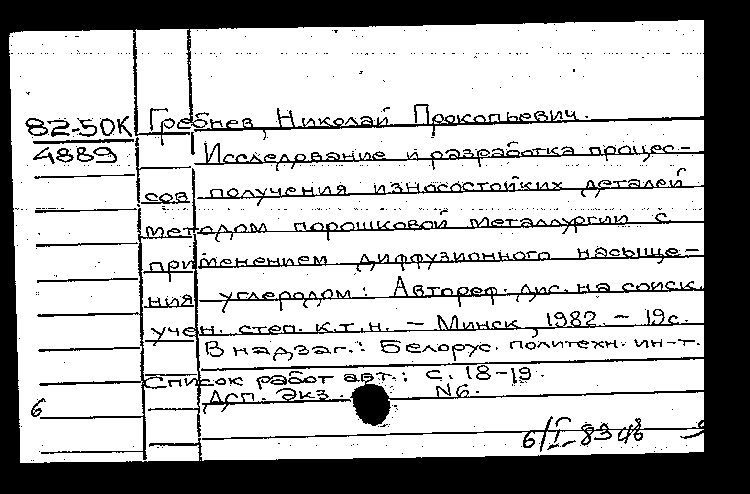 82-50К Гребнев, Николай Прокопьевич.
4889 Исследование и разработка процес-
сов получения износостойких деталей
методом порошковой металлургии с
применением диффузионного насыще-
ния углеродом: Автореф. дис. на соиск.
учен. степ. к.т.н. - Минск, 1982. - 19с.
В надзаг.: Белорус. политехн. ин-т.
Список работ авт.: с. 18-19.
Дсп. Экз. N6.
6
6/I-83